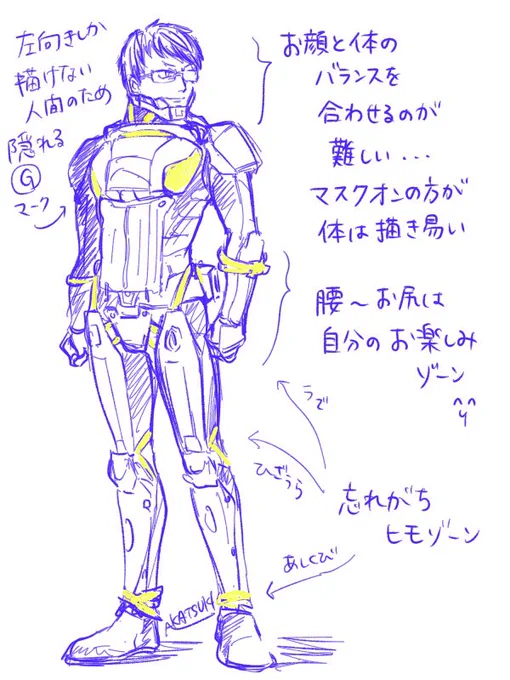 左向きしか
描けない
人間のため
隠れる
G
マーク
お顔と体の
バランスを
合わせるのが
難しい...
マスクオンの方が
体は描き易い
腰〜お尻は
自分のお楽しみ
ゾーン
^^
うで
ひざうら
忘れがち
ヒモゾーン
あしくび
AKATSUKI